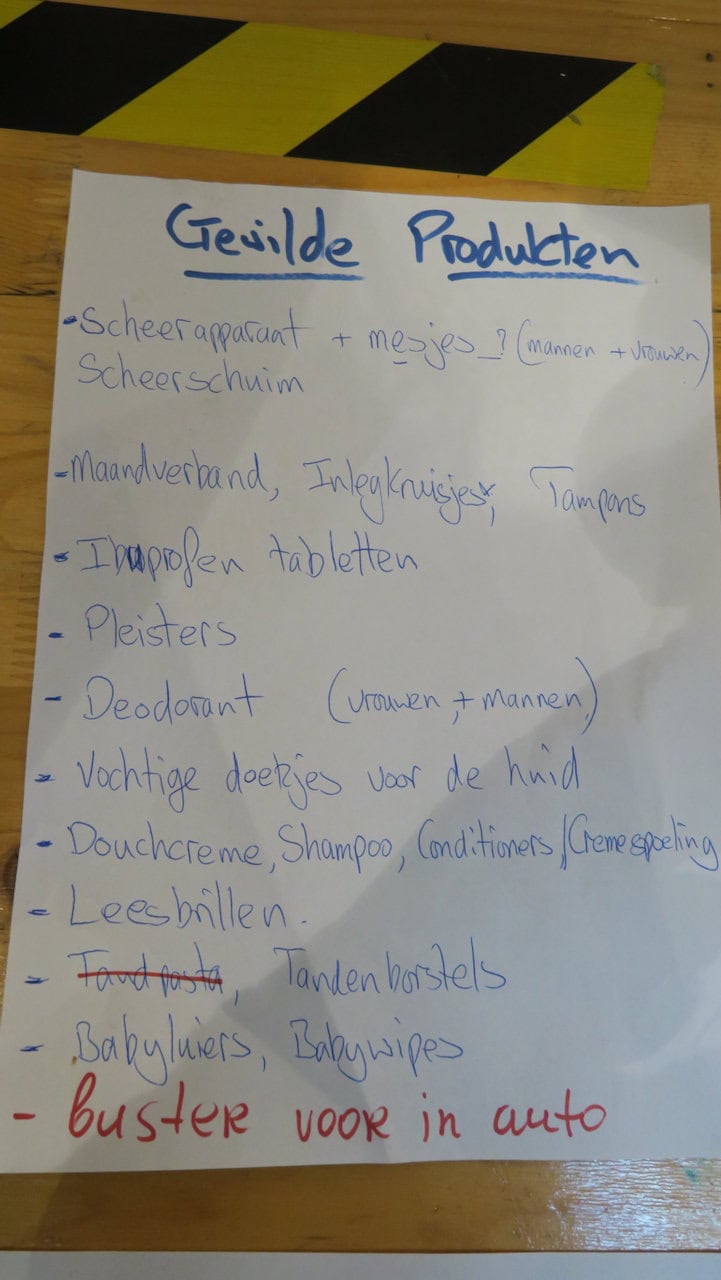 Gewilde Produkten
- Scheerapparaat + mesjes ? (mannen + vrouwen)
Scheerschuim
- Maandverband, Inlegkruisjes, Tampons
- Ibuprofen tabletten
- Pleisters
- Deodorant (vrouwen + mannen)
- Vochtige doekjes voor de huid
- Douchcreme, Shampoo, Conditioners / Cremespoeling
- Leesbrillen.
- Tandpasta, Tandenborstels
- Babyluiers, Babywipes
- buster voor in auto